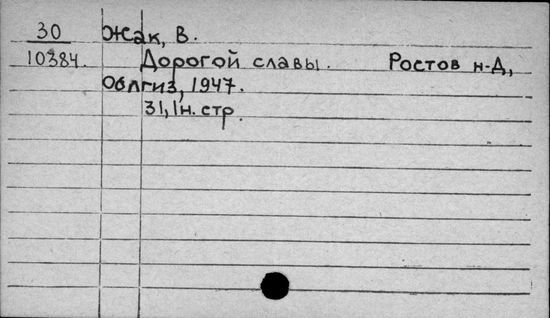 30 Жак, В.
10384. Дорогой славы. Ростов н-Д,
Облгиз, 1947.
31, 1н. стр.